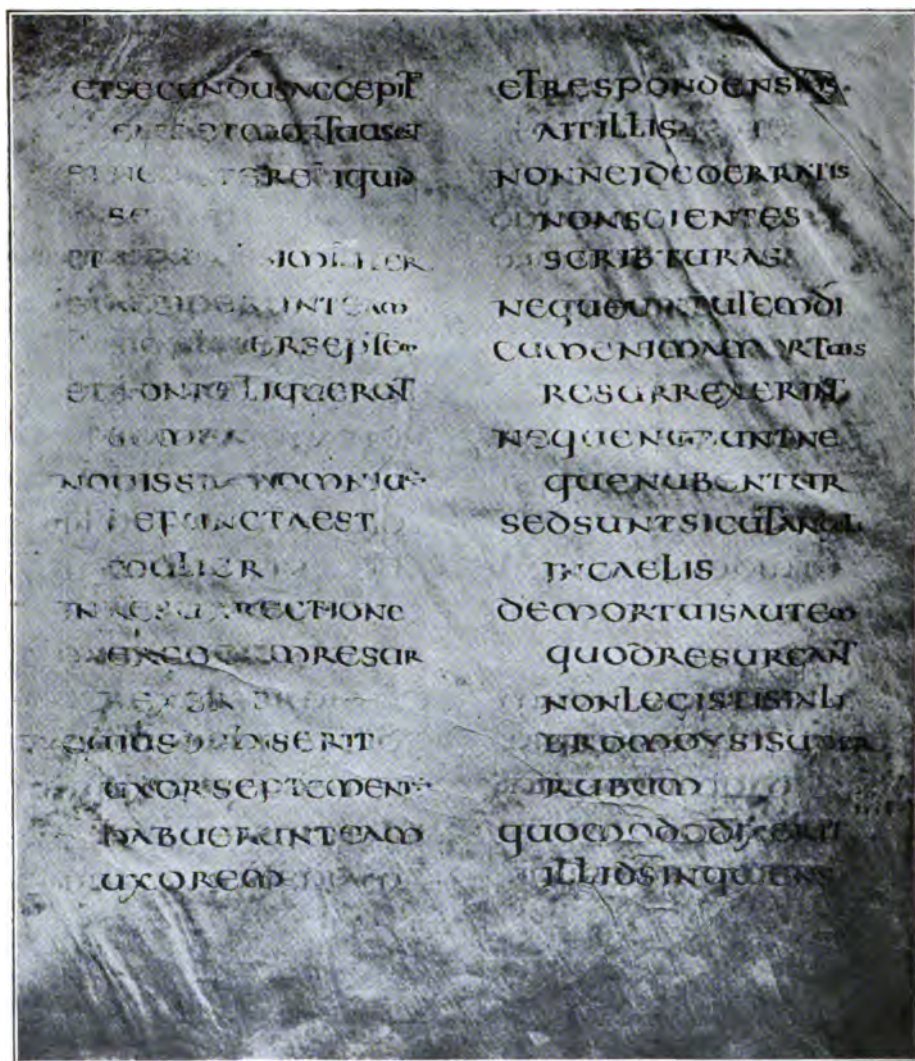 ETSECUNDUSACCEPIT
ETMORTUUSEST
RELIQUID
SE
ET SIMILITER
ACCEPERUNTEAM
SEPTEM
ETNONRELIQUERUNT
SEMEN
NOUISSIMAOMNIUM
DEFUNCTAEST
MULIER
INRESURRECTIONE
RESUR
REXERINT
CUIUS ERIT
UXORSEPTEMENI
HABUERUNTEAM
UXOREM
ETRESPONDENSIHS.
AITILLIS
NONNEIDEOERRATIS
NONSCIENTES
SCRIBTURAS
NEQUEUIRTUTEMDI
CUMENIMAMORTUIS
RESURREXERINT
NEQUENUBUNTNE
QUENUBENTUR
SEDSUNTSICUTANGELI
INCAELIS
DEMORTUISAUTEM
QUODRESURGANT
NONLEGISTISINLI
BROMOYSISUPER
RUBUM
QUOMODODIXERIT
ILLIDSINQUIENS